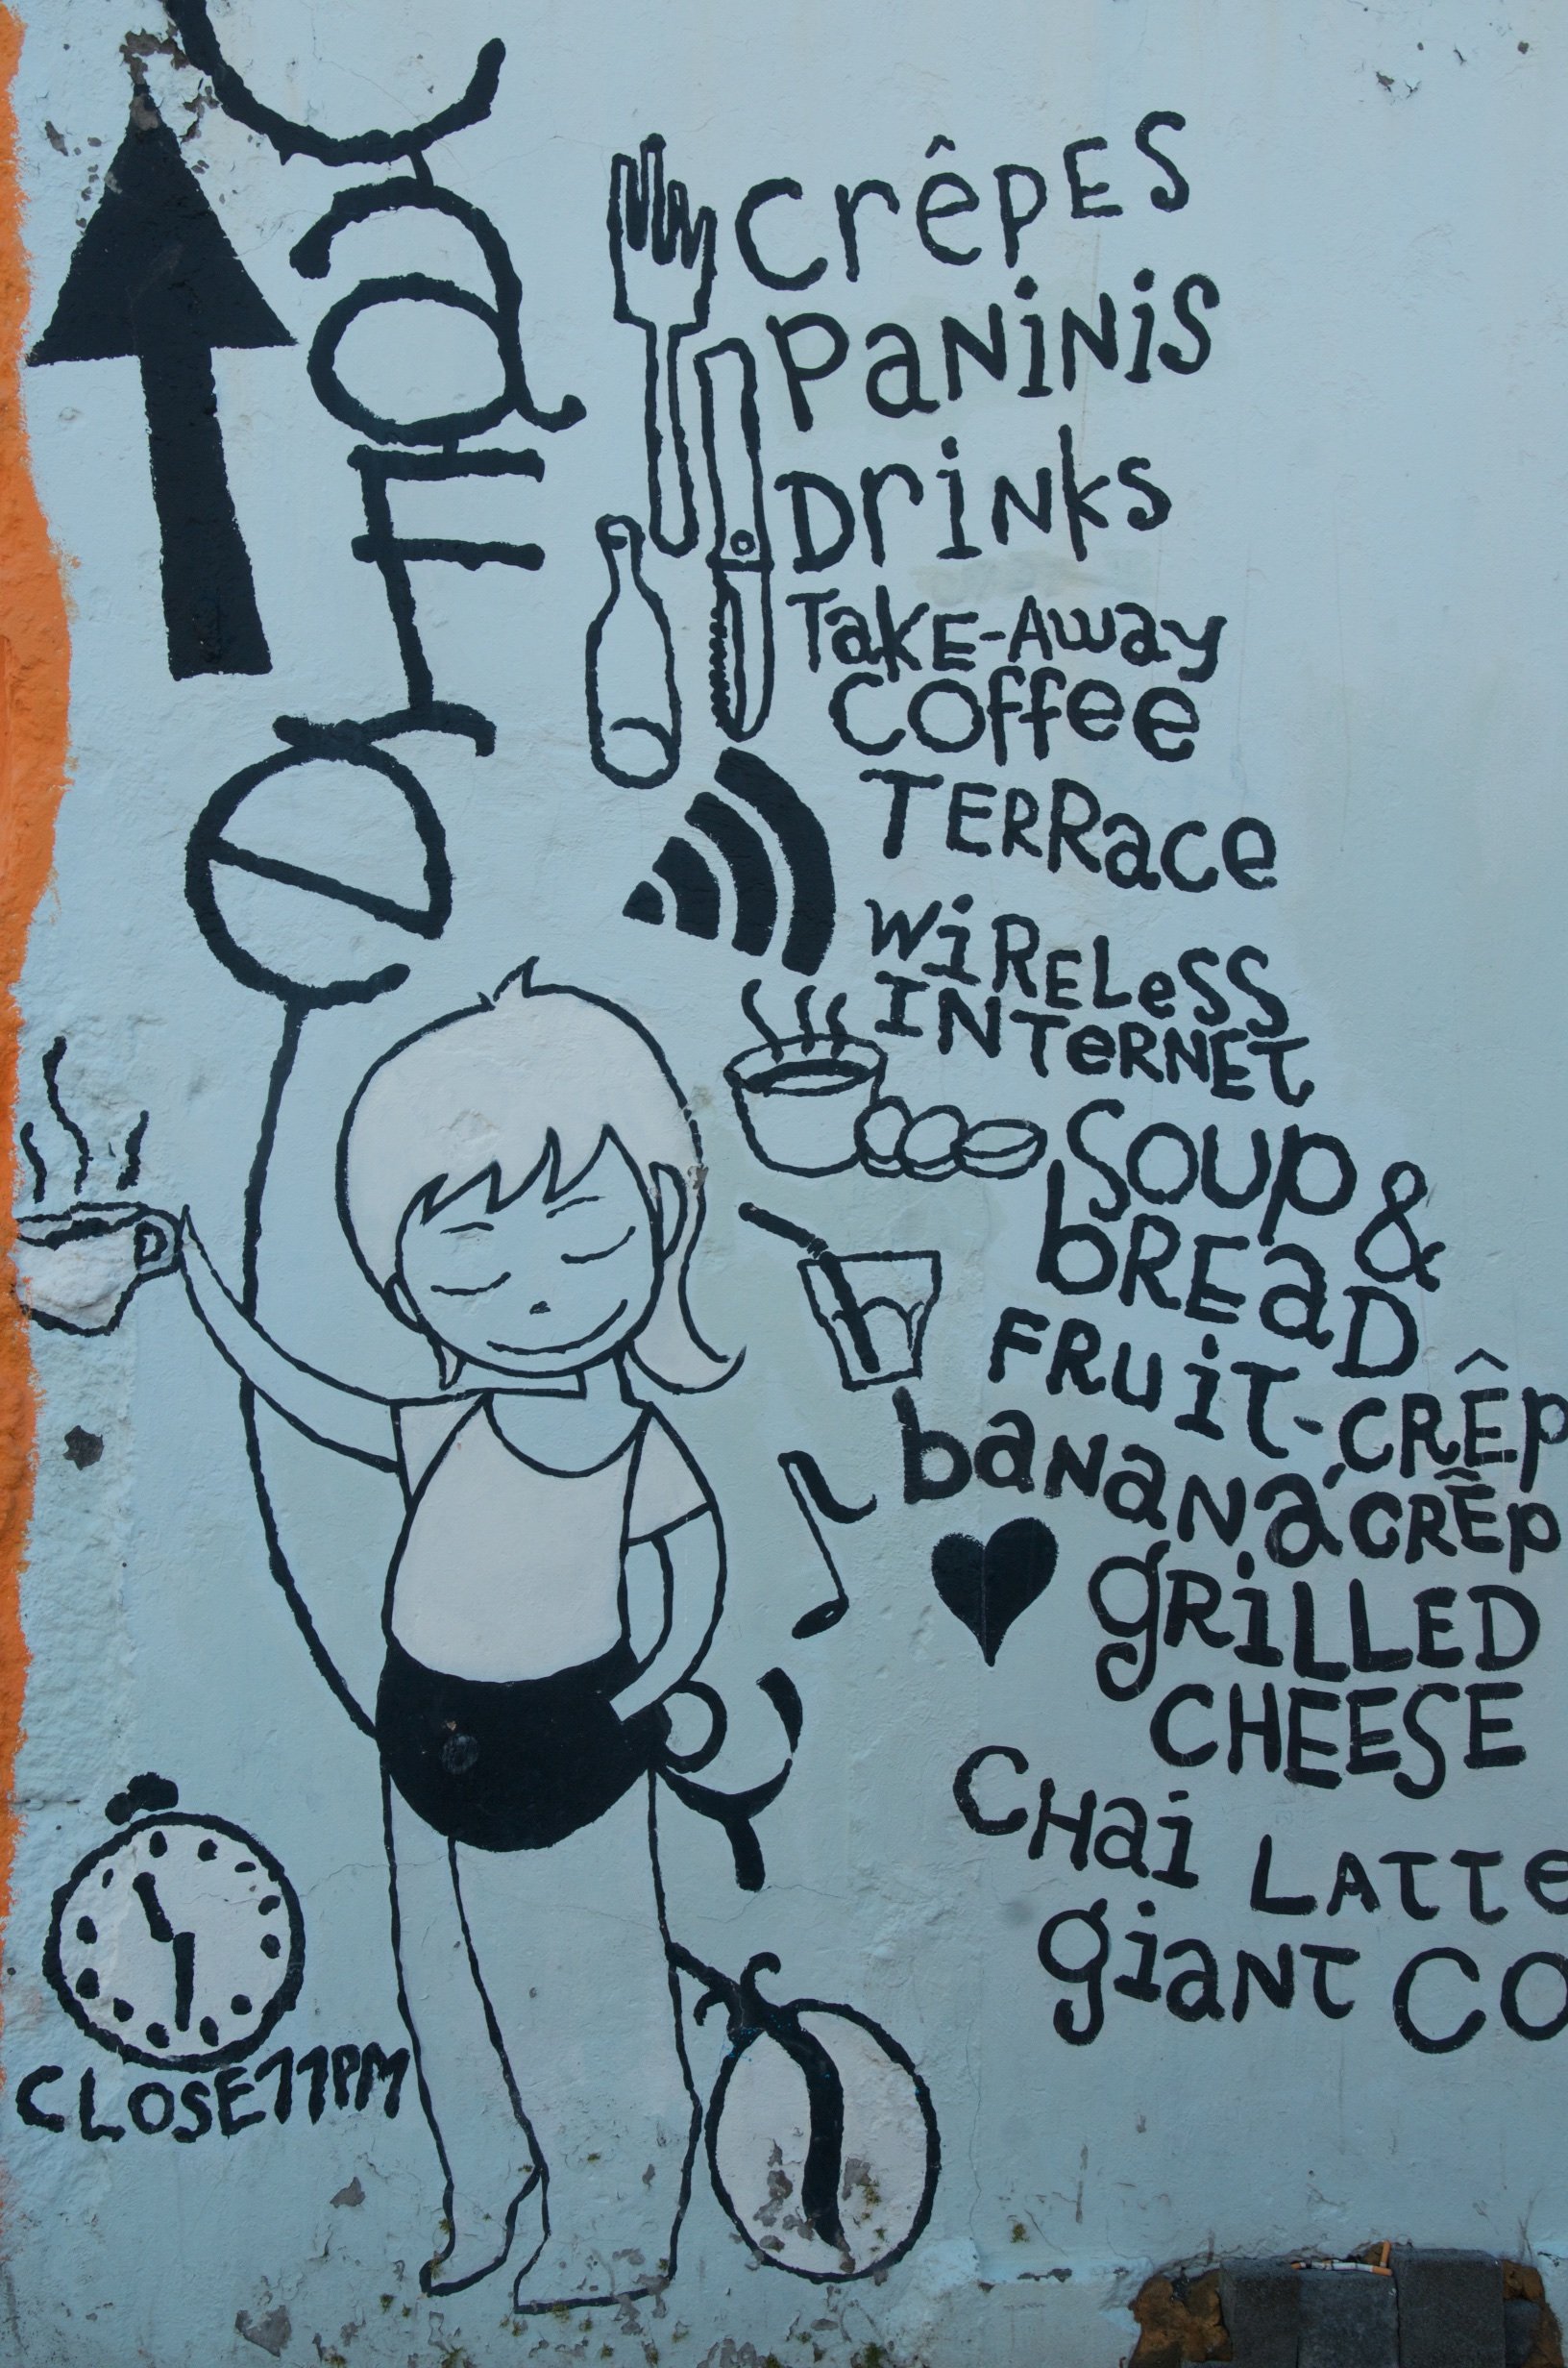 CaFe
crêpES
PaNiNiS
DriNks
TakE-Away
Coffee
TERRace
WiRELeSS
INTeRNET
Soup &
bREaD
FRuiT-CRÊp
baNaNa CRÊp
gRiLLED
CHEESE
CHai LATTe
giaNT CO
CLOSE 11PM